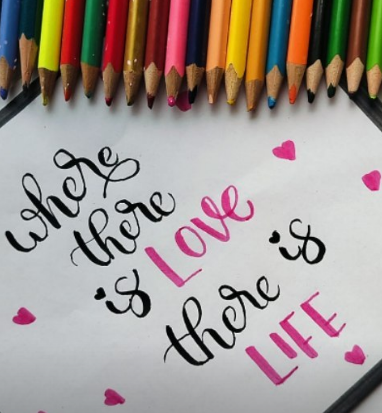 where
there
is LOVE
there is
LIFE